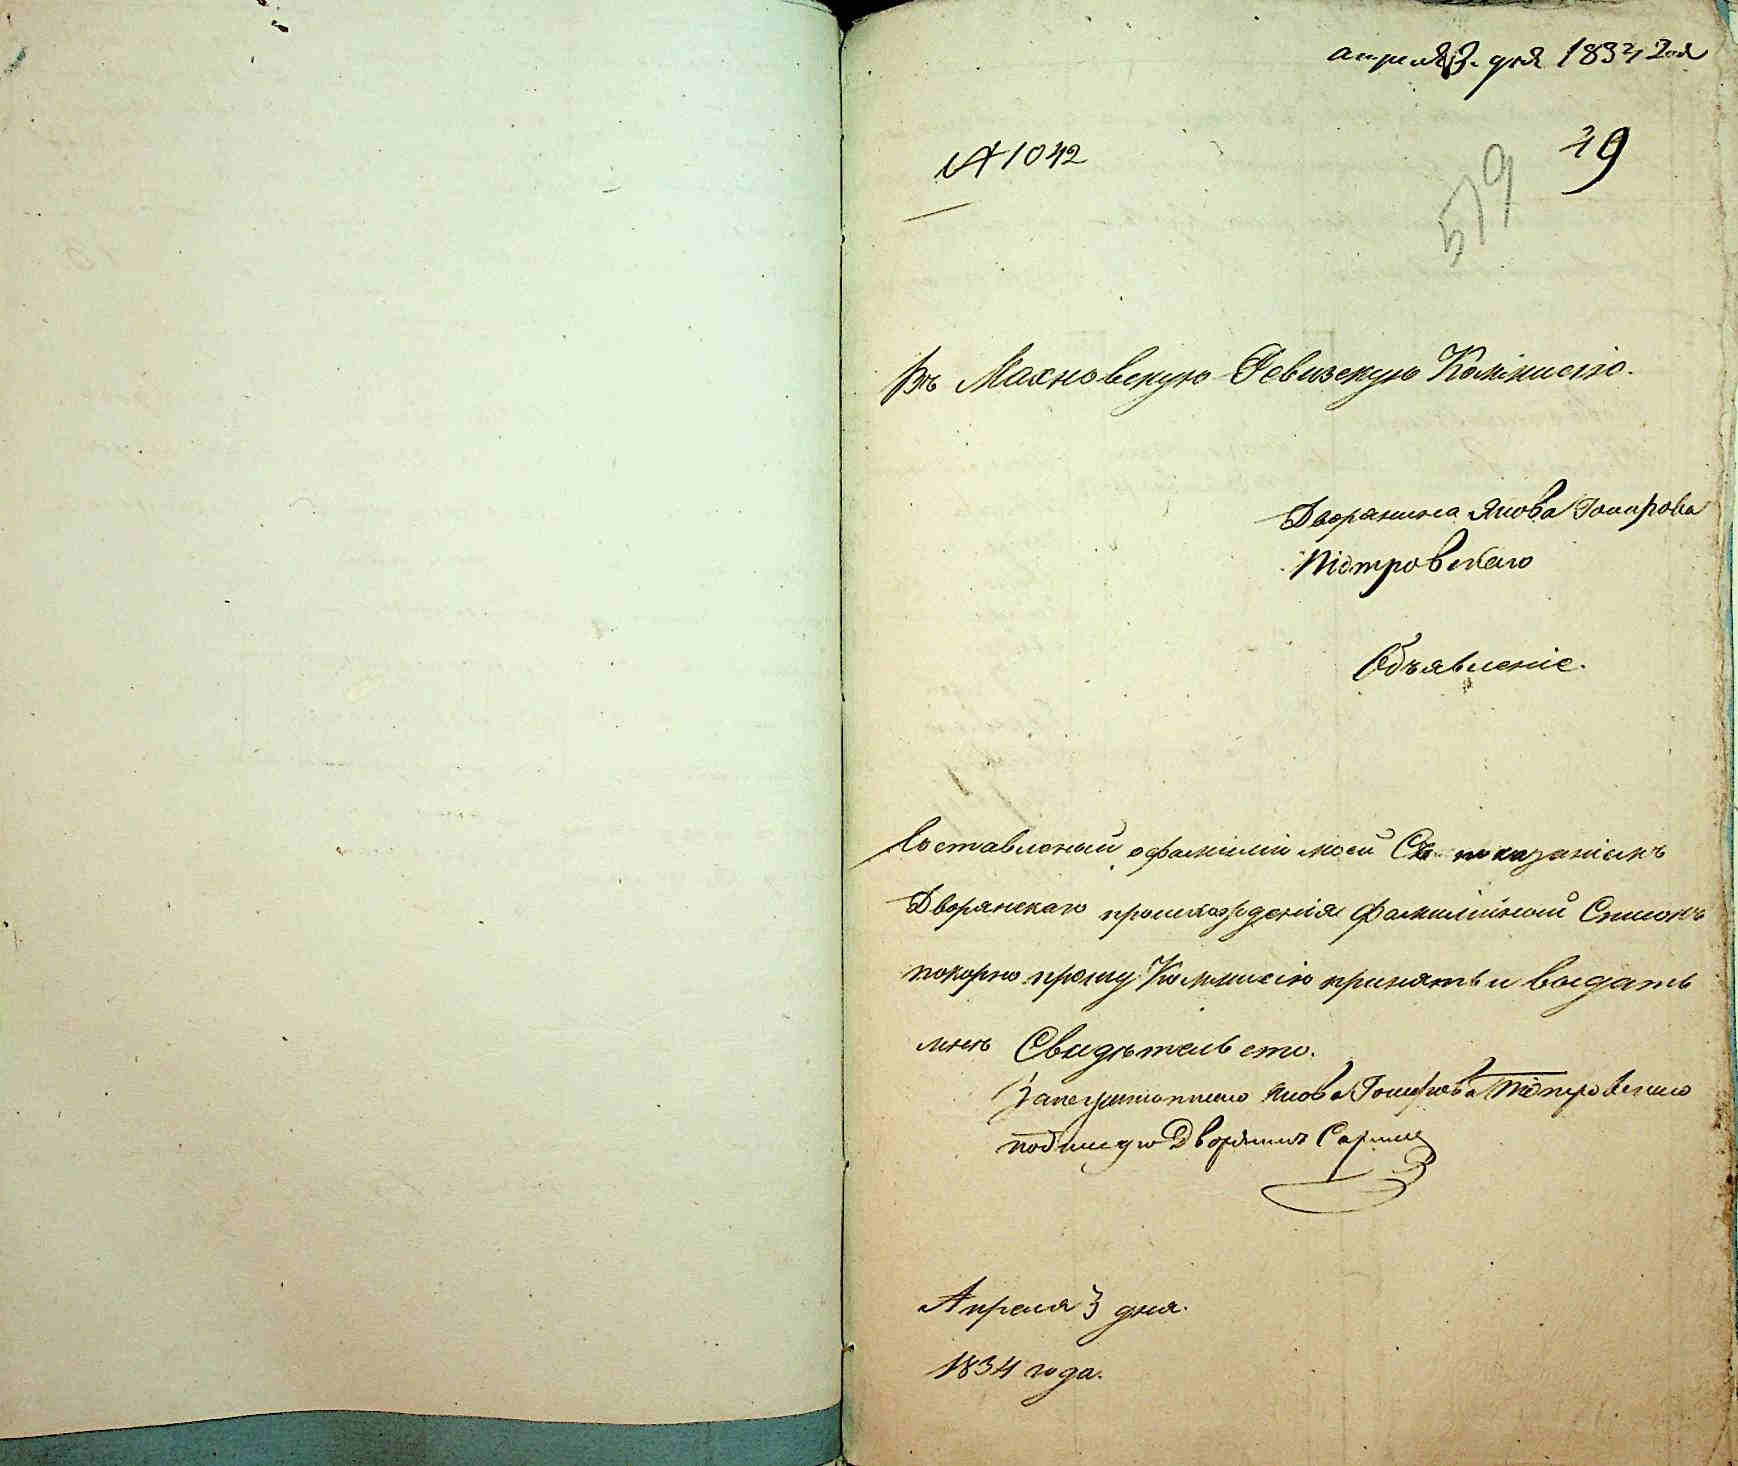 апреля 3. дня 1834 года
№ 1042
49
579
Въ Махновскую Ревизскую Коммисію.
Дворянина Якова
Піотровскаго
Объявленіе.
Составленый о фамиліи моей Съ показаніемъ
Дворянскаго происхожденія фамилійный Списокъ
покорно прошу Коммисію принять и выдать
мнѣ Свидѣтельство.
Якова Піотровскаго
подписую Дворянинъ
Апреля 3 дня.
1834 года.